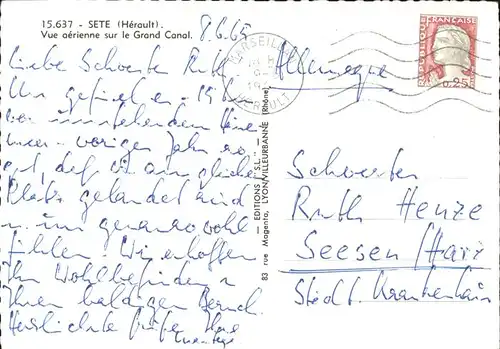 15.637 - SETE (Hérault).
Vue aérienne sur le Grand Canal.
8.6.65
MARSEILLAN
HERAULT
REPUBLIQUE FRANÇAISE
0,25
Allemagne
Liebe Schwester Ruth
Uns gefiel es
im vorigen Jahr so
gut, daß wir am gleichen
Platz gelandet sind
u. uns genauso wohl
fühlen. Wir erhoffen
Ihr Wohlbefinden u.
Ihren baldigen Besuch.
Herzlichste Grüße Ihre
— EDITIONS "S.L." —
83 rue Magenta, LYON-VILLEURBANNE (Rhône)
Schwester
Ruth Henze
Seesen/Harz
Städt. Krankenhaus